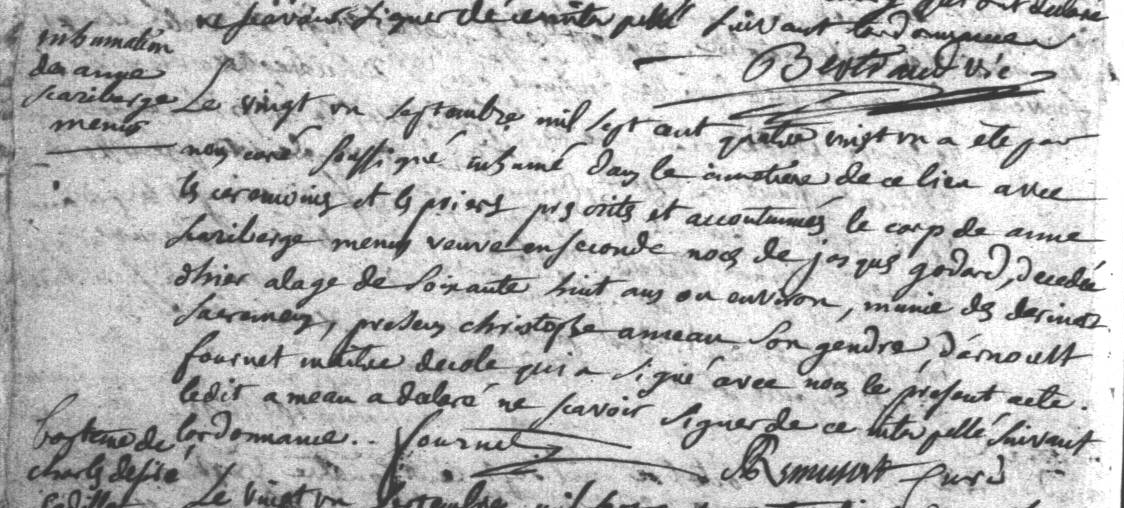 ne scavoir signer de ce interpellé suivant lordonnance
Bertrand vic
inhumation
de anne
scariberge
menus
Le vingt un septembre mil sept cent quatre vingt un a eté par
nous curé soussigné inhumé dans le cimetiere de ce lieu avec
les ceremonies et les prieres prescrits et accoutumés le corp de anne
scariberge menus veuve en seconde noces de jacques godard, decedée
dhier a lage de soixante huit ans ou environ, munie des derniers
sacremens, presens christophe ameau son gendre, d'arnoult
fournet maitre decole qui a signé avec nous le présent acte.
ledit ameau a declaré ne scavoir signer de ce interpellé suivant
lordonnance .. fournet
curé
baptême de
charles desiré
Le vingt un septembre mil